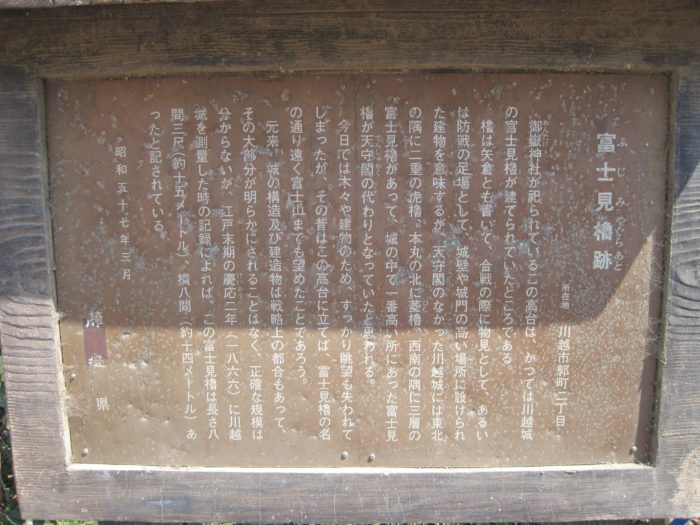 富士見櫓跡
ふじみやぐらあと
所在地 川越市郭町二丁目
御嶽神社が祀られているこの高台は、かつては川越城
の富士見櫓が建てられていたところである。
櫓は矢倉とも書いて、合戦の際に物見として、あるい
は防戦の足場として、城壁、城門の高い場所に設けられ
た建物を意味するが、天守閣のなかった川越城には東北
の隅に二重の虎櫓、本丸の北に菱櫓、西南の隅に三層の
富士見櫓があって、城の中で一番高い所にあった富士見
櫓が天守閣の代わりとなっていたと思われる。
今日では木々や建物のため、すっかり眺望も失われて
しまったが、その昔はこの高台に立てば、富士見櫓の名
の通り遠く富士山までも望めたことであろう。
元来、城の構造及び建造物は戦略上の都合もあって、
その大部分が明らかにされることはなく、正確な規模は
分からないが、江戸末期の慶応二年（一八六六）に川越
城を測量した時の記録によれば、この富士見櫓は長さ八
間三尺（約十五メートル）、横八間（約十四メートル）あ
ったと記されている。
昭和五十七年三月
埼玉県